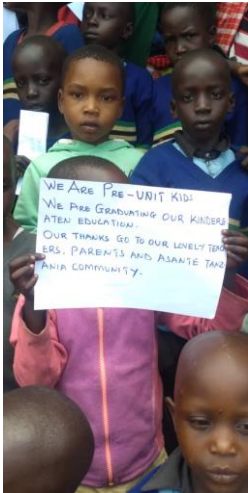 WE ARE PRE-UNIT KIDS
WE ARE GRADUATING OUR KINDERG
ATEN EDUCATION.
OUR THANKS GO TO OUR LOVELY TEACH
ERS, PARENTS AND ASANTE TANZ
ANIA COMMUNITY.